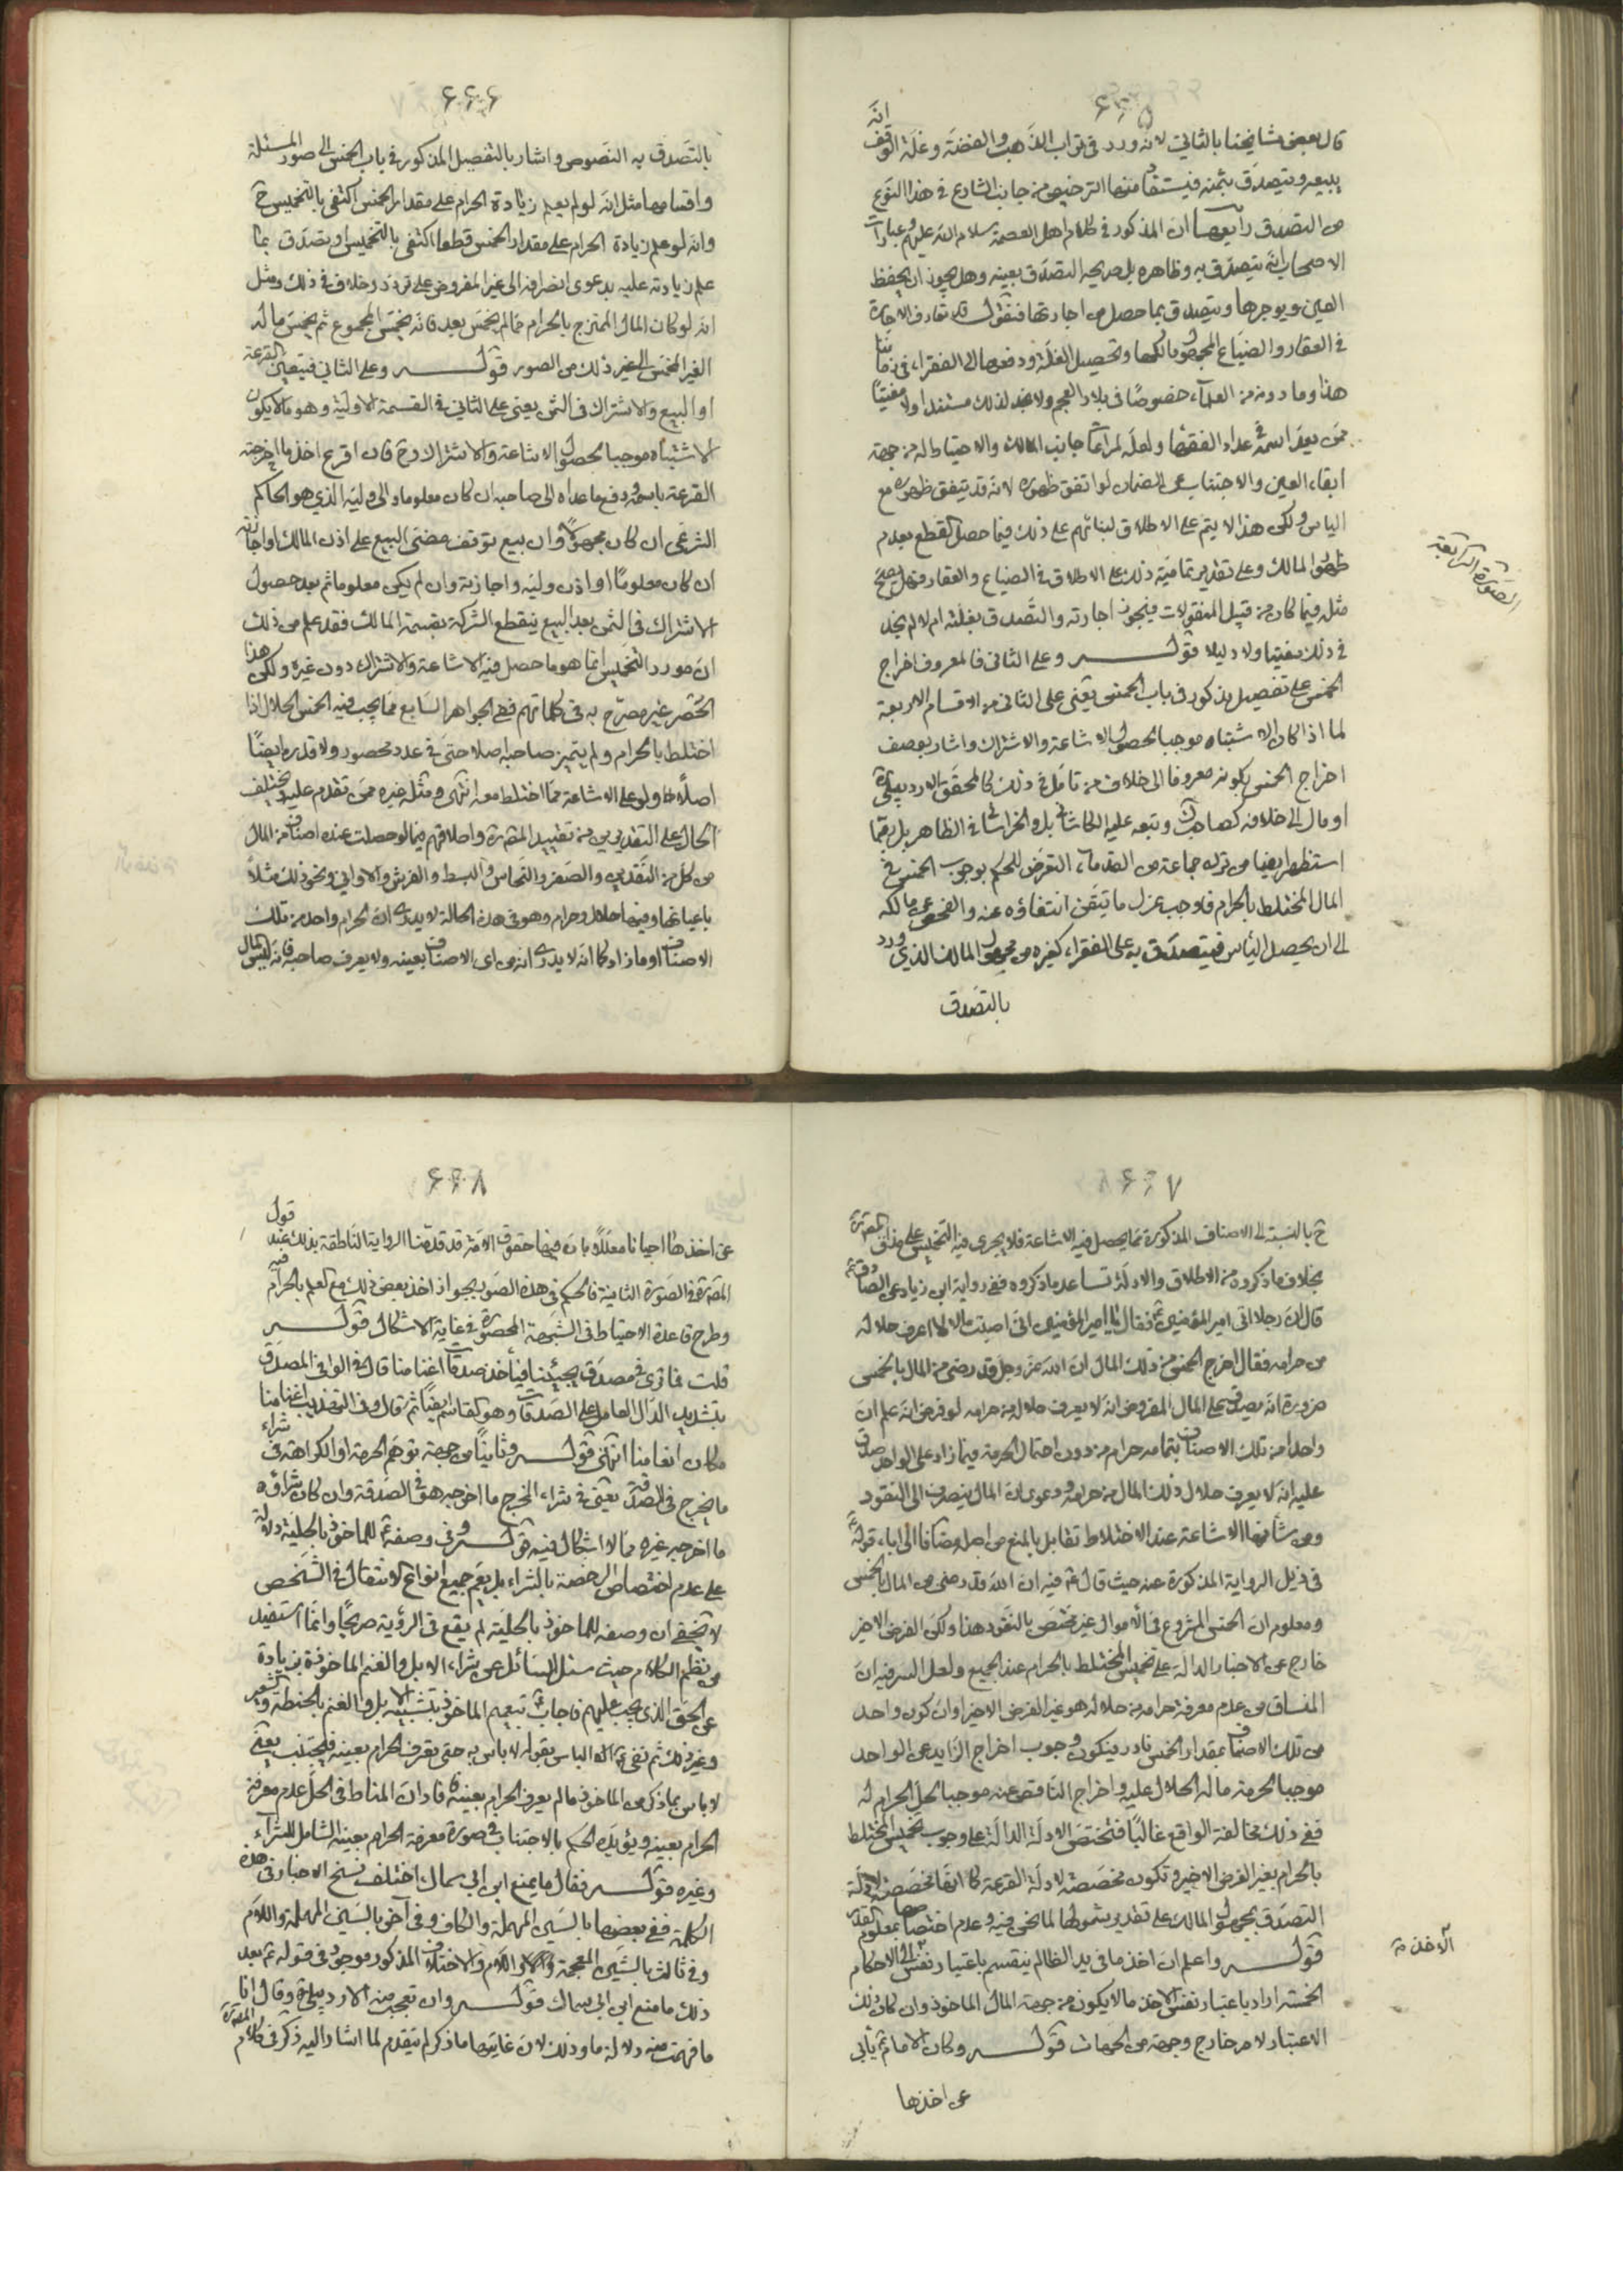 ۶۶۵
قال بعض مشايخنا بالثاني لانه ورد في تراب الذهب والفضة وغلة الوقف انه
يبيعه ويتصدق بثمنه فيستفاد منها الترخيص من جانب الشارع في هذا النوع
من التصدق رابعها ان المذكور في كلام اهل العصمة سلام الله عليهم وعبارات
الاصحاب انه يتصدق به وظاهره بل صريحه التصدق بعينه وهل يجوز ان يحفظ
العين ويوجرها ويتصدق بما حصل من اجارتها فنقول قد تعارف الاجارة
في العقار والضياع المجهول مالكها وتحصيل الغلة ودفعها الى الفقراء في زماننا
هذا وما دونه من العلماء خصوصًا في بلاد العجم ولا نجد لذلك مستندا ولا مفتيًا
ممن يعد اسمه في عداد الفقهاء ولعله لمراعاة جانب المالك والاحتياط له من جهة
ابقاء العين والاجتناب عن الضمان لو اتفق ظهوره لانه قد يتفق ظهوره مع
الياس ولكن هذا لا يتم على الاطلاق لبنائهم على ذلك فيما حصل القطع بعدم
ظهور المالك وعلى تقدير تمامية ذلك على الاطلاق في الضياع والعقار فهل يصح
مثله فيما كان من قبيل المنقولات فيجوز اجارته والتصدق بغلته ام لا لم نجد
في ذلك مفتيا ولا دليلا قوله وعلى الثاني فالمعروف اخراج
الخمس على تفصيل مذكور في باب الخمس يعني على الثاني من الاقسام الاربعة
لما اذا كان الاشتباه موجبا لحصول الاشاعة والاشتراك واشار بوصف
اخراج الخمس بكونه معروفا الى خلاف من تامل في ذلك كالمحقق الاردبيلي
او مال الى خلافه كصاحب وتبعه عليه الكاشاني بل والخراساني في الظاهر بل ربما
استظهر ايضا من ترك جماعة من القدماء التعرض للحكم بوجوب الخمس في
المال المختلط بالحرام فاوجب عزل ما تيقن انتفاؤه عنه والفحص عن مالكه
الى ان يحصل الياس فيتصدق به على الفقراء كغيره من مجهول المالك الذي ورد
بالتصدق
الصورة الرابعة
۶۶۶
بالتصدق به النصوص واشار بالتفصيل المذكور في باب الخمس الى صور المسئلة
واقسامها مثل انه لو لم يعلم زيادة الحرام على مقدار الخمس اكتفى بالتخميس ح
وانه لو علم زيادة الحرام على مقدار الخمس قطعا اكتفى بالتخميس او تصدق بما
علم زيادته عليه بدعوى انصرافه الى غير المفروض على تردد وخلاف في ذلك ومثل
انه لو كان المال الممتزج بالحرام مما لم يخمس بعد فانه يخمس المجموع ثم يخمس ماله
الغير المخمس الى غير ذلك من الصور قوله وعلى الثاني فيتعين القرعة
او البيع والاشتراك في الثمن يعني على الثاني في القسمة الاولية وهو ما لا يكون
الاشتباه موجبا لحصول الاشاعة والاشتراك وح فان اقرع اخذ ما اخرجته
القرعة باسمه ودفع ما عداه الى صاحبه ان كان معلوما والى وليه الذي هو الحاكم
الشرعي ان كان مجهولًا وان بيع توقف مضي البيع على اذن المالك او اجازته
ان كان معلومًا او اذن وليه واجازته وان لم يكن معلوما ثم بعد حصول
الاشتراك في الثمن بعد البيع ينقطع الشركة بقسمة المالك فقد علم من ذلك
ان مورد التخميس انما هو ما حصل فيه الاشاعة والاشتراك دون غيره ولكن هذا
الحصر غير مصرح به في كلماتهم ففي الجواهر السابع مما يجب فيه الخمس الحلال اذا
اختلط بالحرام ولم يتميز صاحبه اصلا حتى في عدد محصور ولا قدره ايضًا
اصلًا ولو على الاشاعة مما اختلط معه انتهى ومثله غيره ممن تقدم عليه فيختلف
الحال على التقديرين من تقييد المصنف واطلاقهم فيما لو حصلت عنده اصناف من المال
من كل من النقدين والصفر والنحاس والبسط والفرش والاواني ونحو ذلك مثلًا
باعيانها وفيها حلال وحرام وهو في هذه الحالة لا يدري ان الحرام واحد من تلك
الاصناف او ما زاد كما انه لا يدري انه من اي الاصناف بعينه ولا يعرف صاحبه فانه ليس المال
۶۶۷
ح بالنسبة الى الاصناف المذكورة مما يحصل فيه الاشاعة فلا يجري فيه التخميس على مذاق المصنف
بخلاف ما ذكروه من الاطلاق والادلة تساعد ما ذكروه ففي رواية ابن زياد عن الصادق
قال ان رجلا اتى امير المؤمنين فقال يا امير المؤمنين اني اصبت مالا لا اعرف حلاله
من حرامه فقال اخرج الخمس من ذلك المال ان الله عز وجل قد رضي من المال بالخمس
ضرورة انه يصدق على المال المفروض انه لا يعرف حلاله من حرامه لو فرض انه علم ان
واحدا من تلك الاصناف بتمامه حرام من دون احتمال الحرمة فيما زاد على الواحد صدق
عليه انه لا يعرف حلال ذلك المال من حرامه ودعوى ان المال ينصرف الى النقود
ومن شانها الاشاعة عند الاختلاط تقابل بالمنع من اصله مضافا الى اباء قوله
في ذيل الرواية المذكورة عنه حيث قال فيه ان الله قد رضي من المال بالخمس
ومعلوم ان الخمس المشروع في الاموال غير مختص بالنقود هذا ولكن الفرض الاخير
خارج عن الاخبار الدالة على تخميس المختلط بالحرام عند الجميع ولعل السر فيه ان
المنساق من عدم معرفة حرامه من حلاله هو غير الفرض الاخير او ان كون واحد
من تلك الاصناف بمقدار الخمس نادر فيكون وجوب اخراج الزايد عن الواحد
موجبا لحرمة ماله الحلال عليه واخراج الناقص عنه موجبا لحل الحرام له
ففي ذلك مخالفة الواقع غالبًا فتختص الادلة الدالة على وجوب تخميس المختلط
بالحرام بغير الفرض الاخير وتكون مخصصة لادلة القرعة كما انها مخصصة لادلة
التصدق بمجهول المالك على تقدير شمولها لما نحن فيه وعدم اختصاصها بمعلوم القدر
قوله واعلم ان اخذ ما في يد الظالم ينقسم باعتبار نفس الاخذ الى الاحكام
الخمسة اراد باعتبار نفس الاخذ ما لا يكون من جهة المال الماخوذ وان كان ذلك
الاعتبار لامر خارج وجهة من الجهات قوله وكان الامام يأبى
عن اخذها
الاخذ
۶۶۸
عن اخذها احيانا معللًا بان فيها حقوق الامة قد قدمنا الرواية الناطقة بذلك عند قول
المصنف والصورة الثانية فالحكم في هذه الصور بجواز اخذ بعض ذلك مع العلم بالحرام فيه
وطرح قاعدة الاحتياط في الشبهة المحصورة في غاية الاشكال قوله
قلت فما ترى في مصدق يجيئنا فيأخذ صدقات اغنامنا قال في الوافي المصدق
بتشديد الدال العامل على الصدقات وهو كقاسم ايضًا ثم قال وفي التهذيب اغنامنا
مكان انعامنا انتهى قوله وثانيًا من جهة توهم الحرمة او الكراهة في شراء
ما يخرج في الصدقة يعني في شراء المخرج ما اخرجه هو في الصدقة وان كان شراؤه
ما اخرجه غيره مما لا اشكال فيه قوله وفي وصفه للماخوذ بالحلية دلالة
على عدم اختصاص الرخصة بالشراء بل يعم جميع انواع الانتقال في الشخص
لا يخفى ان وصفه للماخوذ بالحلية لم يقع في الرؤية صريحًا وانما استفيد
من نظم الكلام حيث سئل السائل عن شراء الابل والغنم الماخوذة بزيادة
عن الحق الذي يجب عليهم فاجاب بتعميم الماخوذ بتشبيه الابل والغنم بالحنطة والشعير
وغير ذلك ثم نفى الباس بقوله لا باس به حتى يعرف الحرام بعينه فيجتنب يعني
لا باس بما ذكر من الماخوذ ما لم يعرف الحرام بعينه فافاد ان المناط في الحل عدم معرفة
الحرام بعينه ويؤيده الحكم بالاجتناب في صورة معرفة الحرام بعينه الشامل للشراء
وغيره قوله فقال ما يمنع ابن ابي سمال اختلف نسخ الاخبار في هذه
الكلمة ففي بعضها بالسين المهملة والكاف وفي آخر بالسين المهملة واللام
وفي ثالث بالشين المعجمة واللام والاختلاف المذكور موجود في قوله بعد
ذلك ما منع ابن ابي سماك قوله وان تعجب منه الاردبيلي وقال انا
ما فهمت منه دلالة ما وذلك لان غايتها ما ذكر لم يتقدم لما اشار اليه ذكر في كلام المصنف